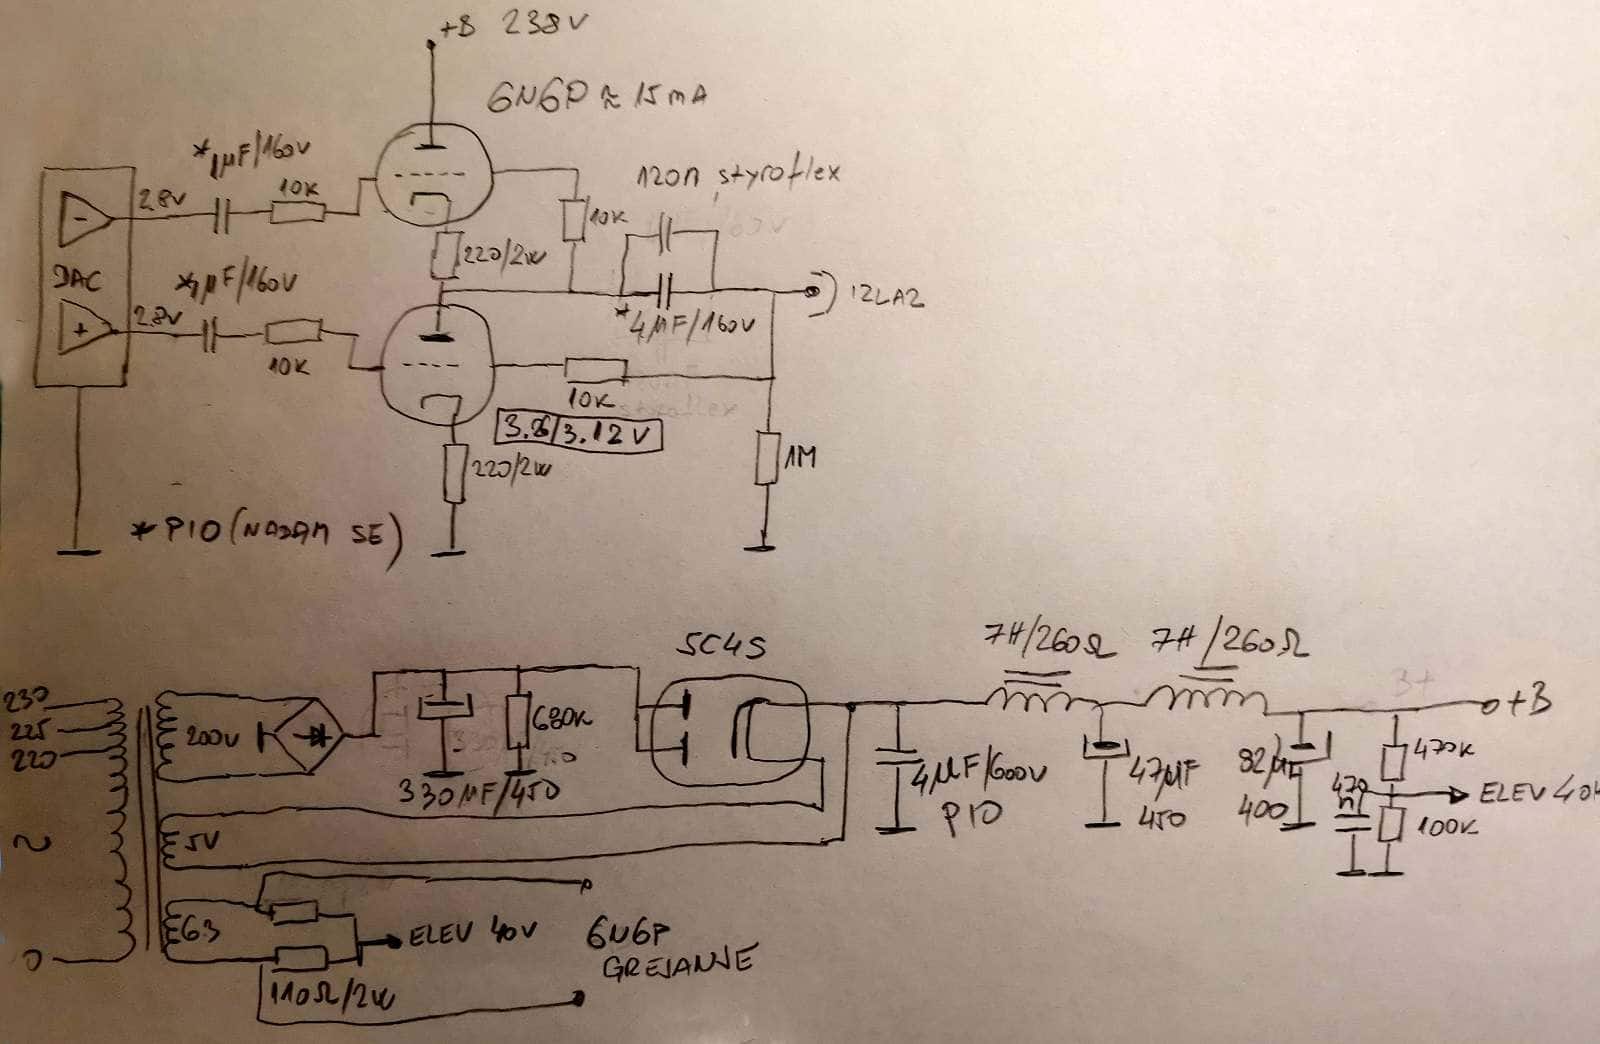 +B 238V
6N6P ≈ 15mA
*1µF/160V
120n styroflex
28V
10K
10K
DAC
-
220/2W
*1µF/160V
IZLAZ
28V
*4µF/160V
+
10K
10K
3.26/3.12V
220/2W
1M
*PIO (NADAM SE)
5C4S
7H/260Ω
7H/260Ω
230
225
220
200V
680K
+B
470K
330µF/450
4µF/600V
PIO
47µF
450
82µ
400
470
n
ELEV 40
100K
~
5V
6.3
ELEV 40V
6N6P
GREJANJE
0
110Ω/2W